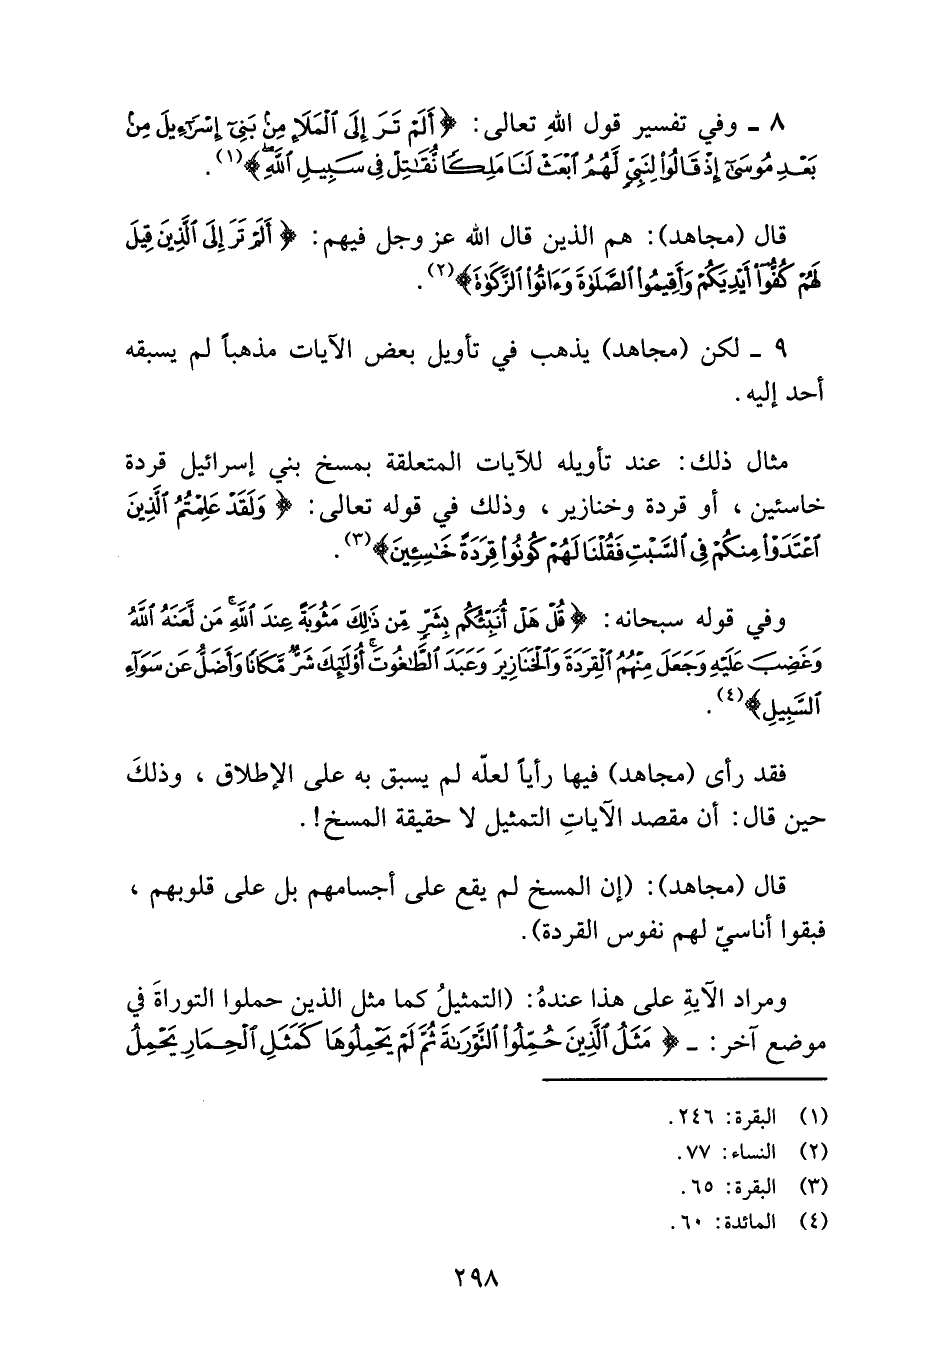 ٨ ـ وفي تفسير قول اللهِ تعالى: ﴿أَلَمْ تَرَ إِلَى ٱلْمَلَإِ مِنۢ بَنِىٓ إِسْرَٰٓءِيلَ مِنۢ
بَعْدِ مُوسَىٰٓ إِذْ قَالُوا۟ لِنَبِىٍّ لَّهُمُ ٱبْعَثْ لَنَا مَلِكًا نُّقَٰتِلْ فِى سَبِيلِ ٱللَّهِۖ﴾(١).
قال (مجاهد): هم الذين قال الله عز وجل فيهم: ﴿أَلَمْ تَرَ إِلَى ٱلَّذِينَ قِيلَ
لَهُمْ كُفُّوٓا۟ أَيْدِيَكُمْ وَأَقِيمُوا۟ ٱلصَّلَوٰةَ وَءَاتُوا۟ ٱلزَّكَوٰةَ﴾(٢).
٩ ـ لكن (مجاهد) يذهب في تأويل بعض الآيات مذهباً لم يسبقه
أحد إليه.
مثال ذلك: عند تأويله للآيات المتعلقة بمسخ بني إسرائيل قردة
خاسئين، أو قردة وخنازير، وذلك في قوله تعالى: ﴿وَلَقَدْ عَلِمْتُمُ ٱلَّذِينَ
ٱعْتَدَوْا۟ مِنكُمْ فِى ٱلسَّبْتِ فَقُلْنَا لَهُمْ كُونُوا۟ قِرَدَةً خَٰسِـِٔينَ﴾(٣).
وفي قوله سبحانه: ﴿قُلْ هَلْ أُنَبِّئُكُم بِشَرٍّ مِّن ذَٰلِكَ مَثُوبَةً عِندَ ٱللَّهِۚ مَن لَّعَنَهُ ٱللَّهُ
وَغَضِبَ عَلَيْهِ وَجَعَلَ مِنْهُمُ ٱلْقِرَدَةَ وَٱلْخَنَازِيرَ وَعَبَدَ ٱلطَّٰغُوتَۚ أُو۟لَٰٓئِكَ شَرٌّ مَّكَانًا وَأَضَلُّ عَن سَوَآءِ
ٱلسَّبِيلِ﴾(٤).
فقد رأى (مجاهد) فيها رأياً لعلّه لم يسبق به على الإطلاق، وذلكَ
حين قال: أن مقصد الآياتِ التمثيل لا حقيقة المسخ!.
قال (مجاهد): (إن المسخ لم يقع على أجسامهم بل على قلوبهم،
فبقوا أناسيّ لهم نفوس القردة).
ومراد الآيةِ على هذا عندهُ: (التمثيلُ كما مثل الذين حملوا التوراةَ في
موضع آخر: ـ ﴿مَثَلُ ٱلَّذِينَ حُمِّلُوا۟ ٱلتَّوْرَىٰةَ ثُمَّ لَمْ يَحْمِلُوهَا كَمَثَلِ ٱلْحِمَارِ يَحْمِلُ
(١) البقرة: ٢٤٦.
(٢) النساء: ٧٧.
(٣) البقرة: ٦٥.
(٤) المائدة: ٦٠.
٢٩٨